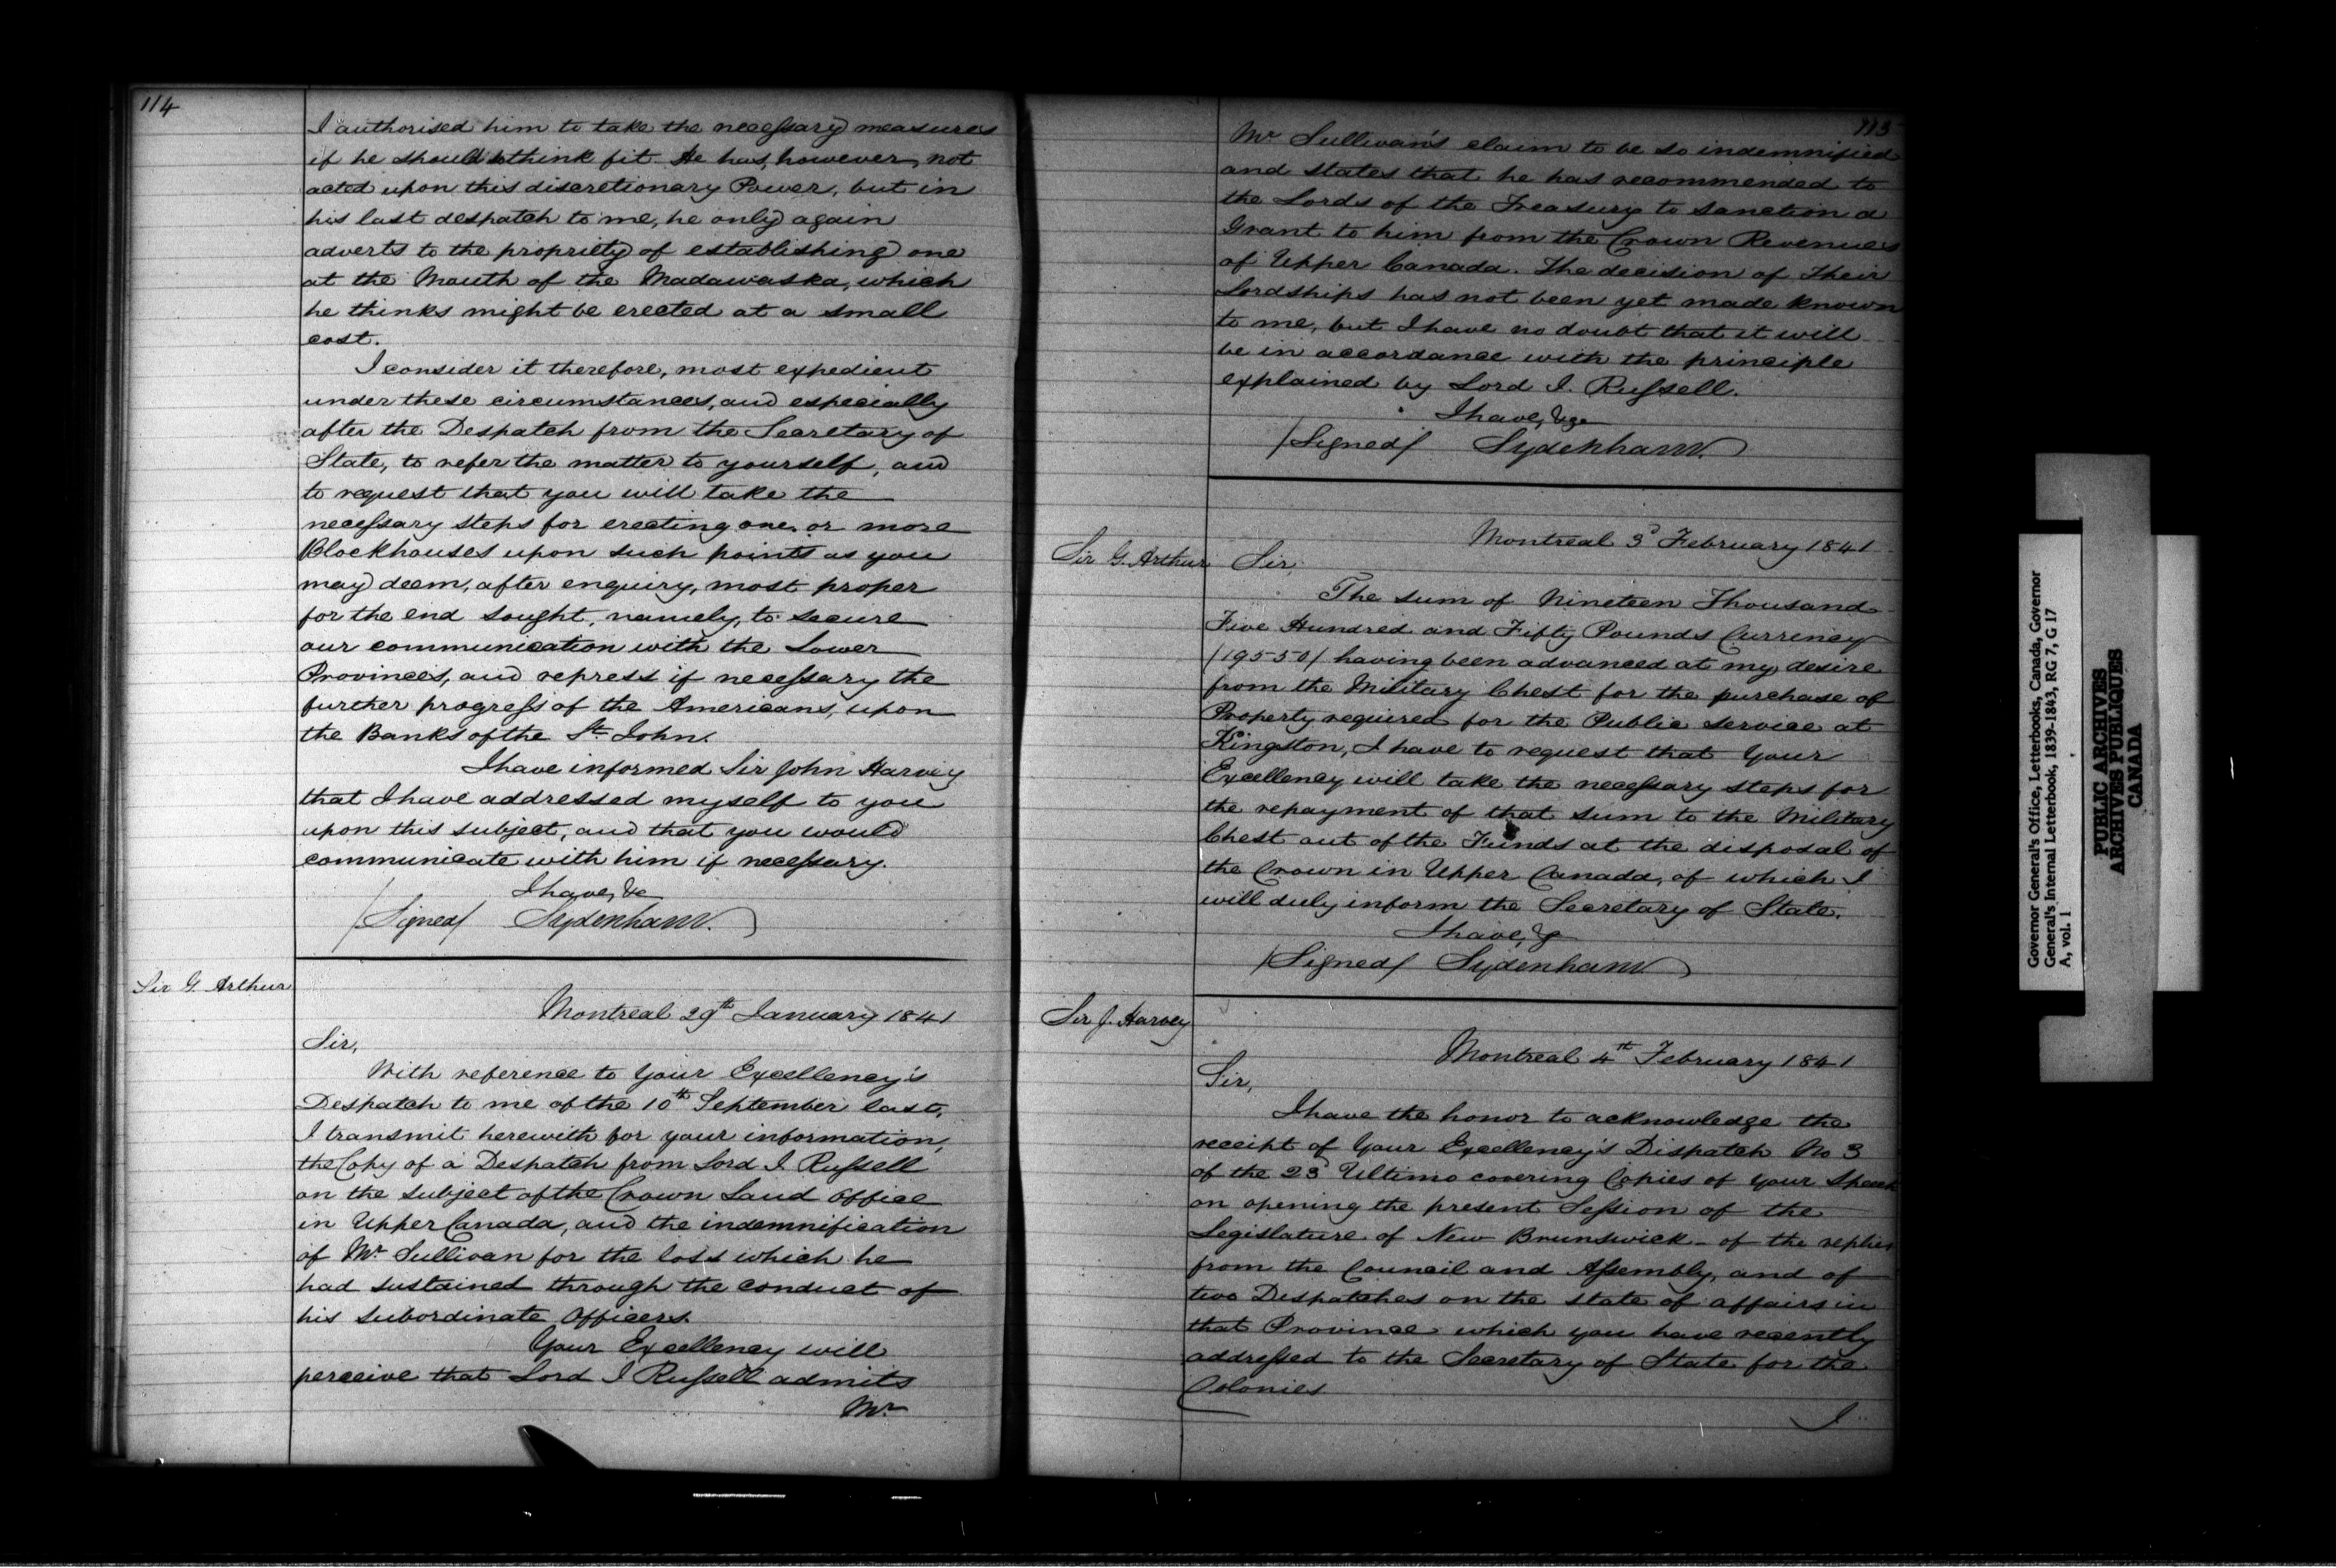 114
I authorised him to take the necessary measures
if he should think fit. He has, however, not
acted upon this discretionary Power, but in
his last despatch to me, he only again
adverts to the propriety of establishing one
at the Mouth of the Madawaska, which
he thinks might be erected at a small
cost.
I consider it therefore, most expedient
under these circumstances, and especially
after the Despatch from the Secretary of
State, to refer the matter to yourself, and
to request that you will take the
necessary steps for erecting one or more
Blockhouses upon such points as you
may deem, after enquiry, most proper
for the end sought, namely, to secure
our communication with the Lower
Provinces, and repress if necessary the
further progress of the Americans, upon
the Banks of the St. John.
I have informed Sir John Harvey
that I have addressed myself to you
upon this subject, and that you would
communicate with him if necessary.
I have, &c
(Signed) Sydenham.
Sir G. Arthur
Montreal 29th January 1841
Sir,
With reference to Your Excellency's
Despatch to me of the 10th September last,
I transmit herewith for your information,
the Copy of a Despatch from Lord J. Russell
on the subject of the Crown Land Office
in Upper Canada, and the indemnification
of Mr. Sullivan for the loss which he
had sustained through the conduct of
his subordinate Officers.
Your Excellency will
perceive that Lord J Russell admits
Mr
115
Mr Sullivan's claim to be so indemnified
and states that he has recommended to
the Lords of the Treasury to sanction a
Grant to him from the Crown Revenues
of Upper Canada. The decision of Their
Lordships has not been yet made known
to me, but I have no doubt that it will
be in accordance with the principle
explained by Lord J. Russell.
I have, &c
(Signed) Sydenham.
Montreal 3d February 1841
Sir G. Arthur
Sir,
The sum of Nineteen Thousand
Five Hundred and Fifty Pounds Currency
(19550) having been advanced at my desire
from the Military Chest for the purchase of
Property required for the Public service at
Kingston, I have to request that Your
Excellency will take the necessary steps for
the repayment of that sum to the Military
Chest out of the Funds at the disposal of
the Crown in Upper Canada, of which I
will duly inform the Secretary of State.
I have, &
(Signed) Sydenham
Sir J. Harvey
Montreal 4th February 1841
Sir,
I have the honor to acknowledge the
receipt of Your Excellency's Dispatch No 3
of the 23d Ultimo covering Copies of your Speech
on opening the present Session of the
Legislature of New Brunswick - of the replies
from the Council and Assembly, and of
two Despatches on the state of affairs in
that Province which you have recently
addressed to the Secretary of State for the
Colonies
I
Governor General's Office, Letterbooks, Canada, Governor
General's Internal Letterbook, 1839-1843, RG 7, G 17
A, vol. 1
PUBLIC ARCHIVES
ARCHIVES PUBLIQUES
CANADA